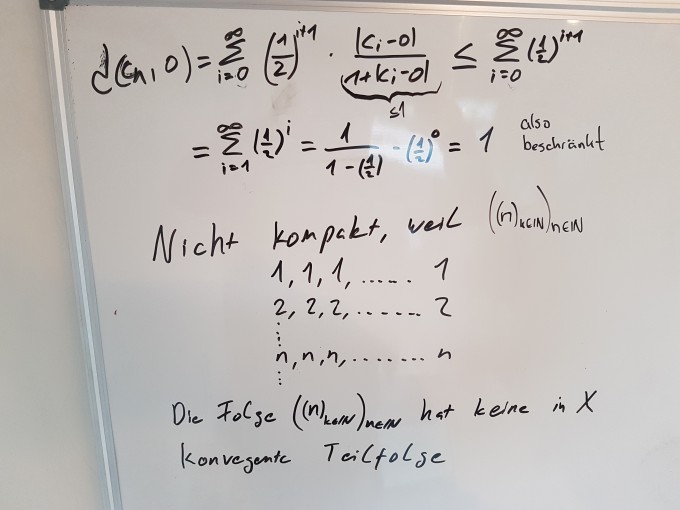 d(cn, 0) = ∑_{i=0}^{∞} (1/2)^{i+1} · |ci-0| / (1+|ci-0|) ≤ ∑_{i=0}^{∞} (1/2)^{i+1}
≤1
= ∑_{i=1}^{∞} (1/2)^i = 1 / (1-(1/2)) - (1/2)^0 = 1 also beschränkt
Nicht kompakt, weil ((n)_{k∈ℕ})_{n∈ℕ}
1, 1, 1, ...... 1
2, 2, 2, ....... 2
⋮
n, n, n, ........ n
⋮
Die Folge ((n)_{k∈ℕ})_{n∈ℕ} hat keine in X
konvegente Teilfolge